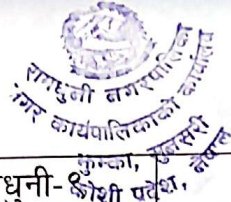 रामधुनी नगरपालिका
नगर कार्यपालिकाको कार्यालय
झुम्का, सुनसरी
कोशी प्रदेश, नेपाल
धुनी-